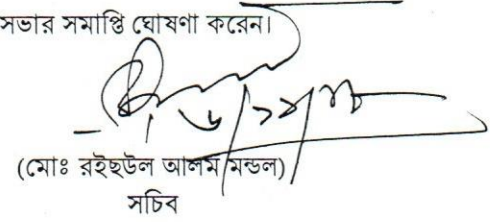 সভার সমাপ্তি ঘোষণা করেন।
(মোঃ রইছউল আলম মন্ডল)
সচিব